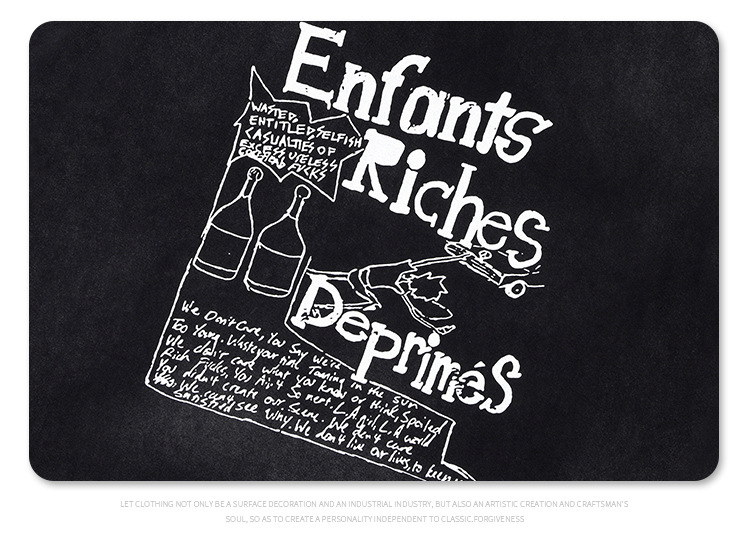 Enfants
Riches
Déprimés
WASTED,
ENTITLED, SELFISH
CASUALTIES OF
EXCESS, USELESS
FUCKS
We Don't Care, You Say We're
Too Young. Waste your time Tanning in the sun
We don't care what you know or think, Spoiled
Rich Fucks, You Ain't So neat. L.A girl, L.A world
You didn't create our Scene. We don't care
We can't see why. We don't live our lives, to keep
Satisfied
LET CLOTHING NOT ONLY BE A SURFACE DECORATION AND AN INDUSTRIAL INDUSTRY, BUT ALSO AN ARTISTIC CREATION AND CRAFTSMAN'S
SOUL, SO AS TO CREATE A PERSONALITY INDEPENDENT TO CLASSIC.FORGIVENESS